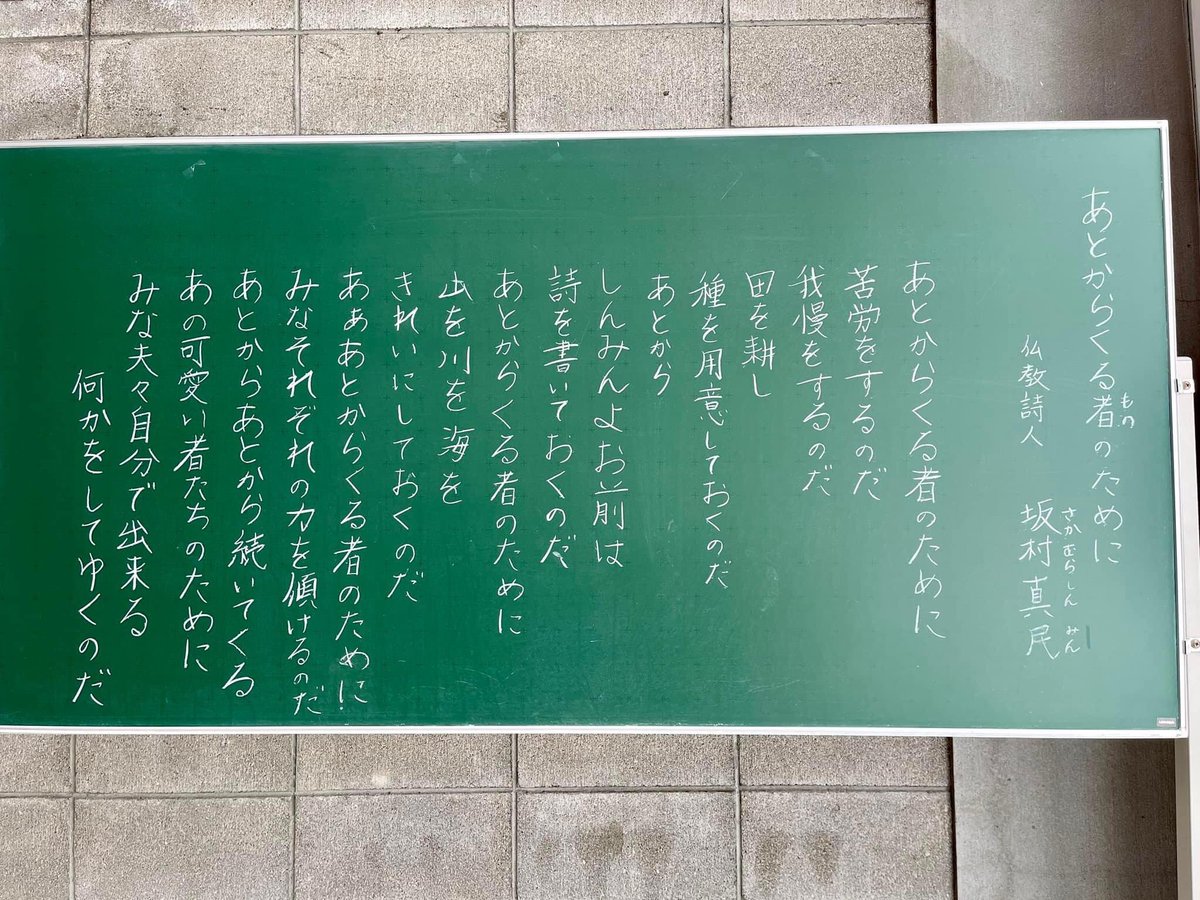 あとからくる者のために
もの
仏教詩人 坂村真民
さかむらしんみん
あとからくる者のために
苦労をするのだ
我慢をするのだ
田を耕し
種を用意しておくのだ
あとから
しんみんよお前は
詩を書いておくのだ
あとからくる者のために
山を川を海を
きれいにしておくのだ
あぁあとからくる者のために
みなそれぞれの力を傾けるのだ
あとからあとから続いてくる
あの可愛い者たちのために
みな夫々自分で出来る
何かをしてゆくのだ